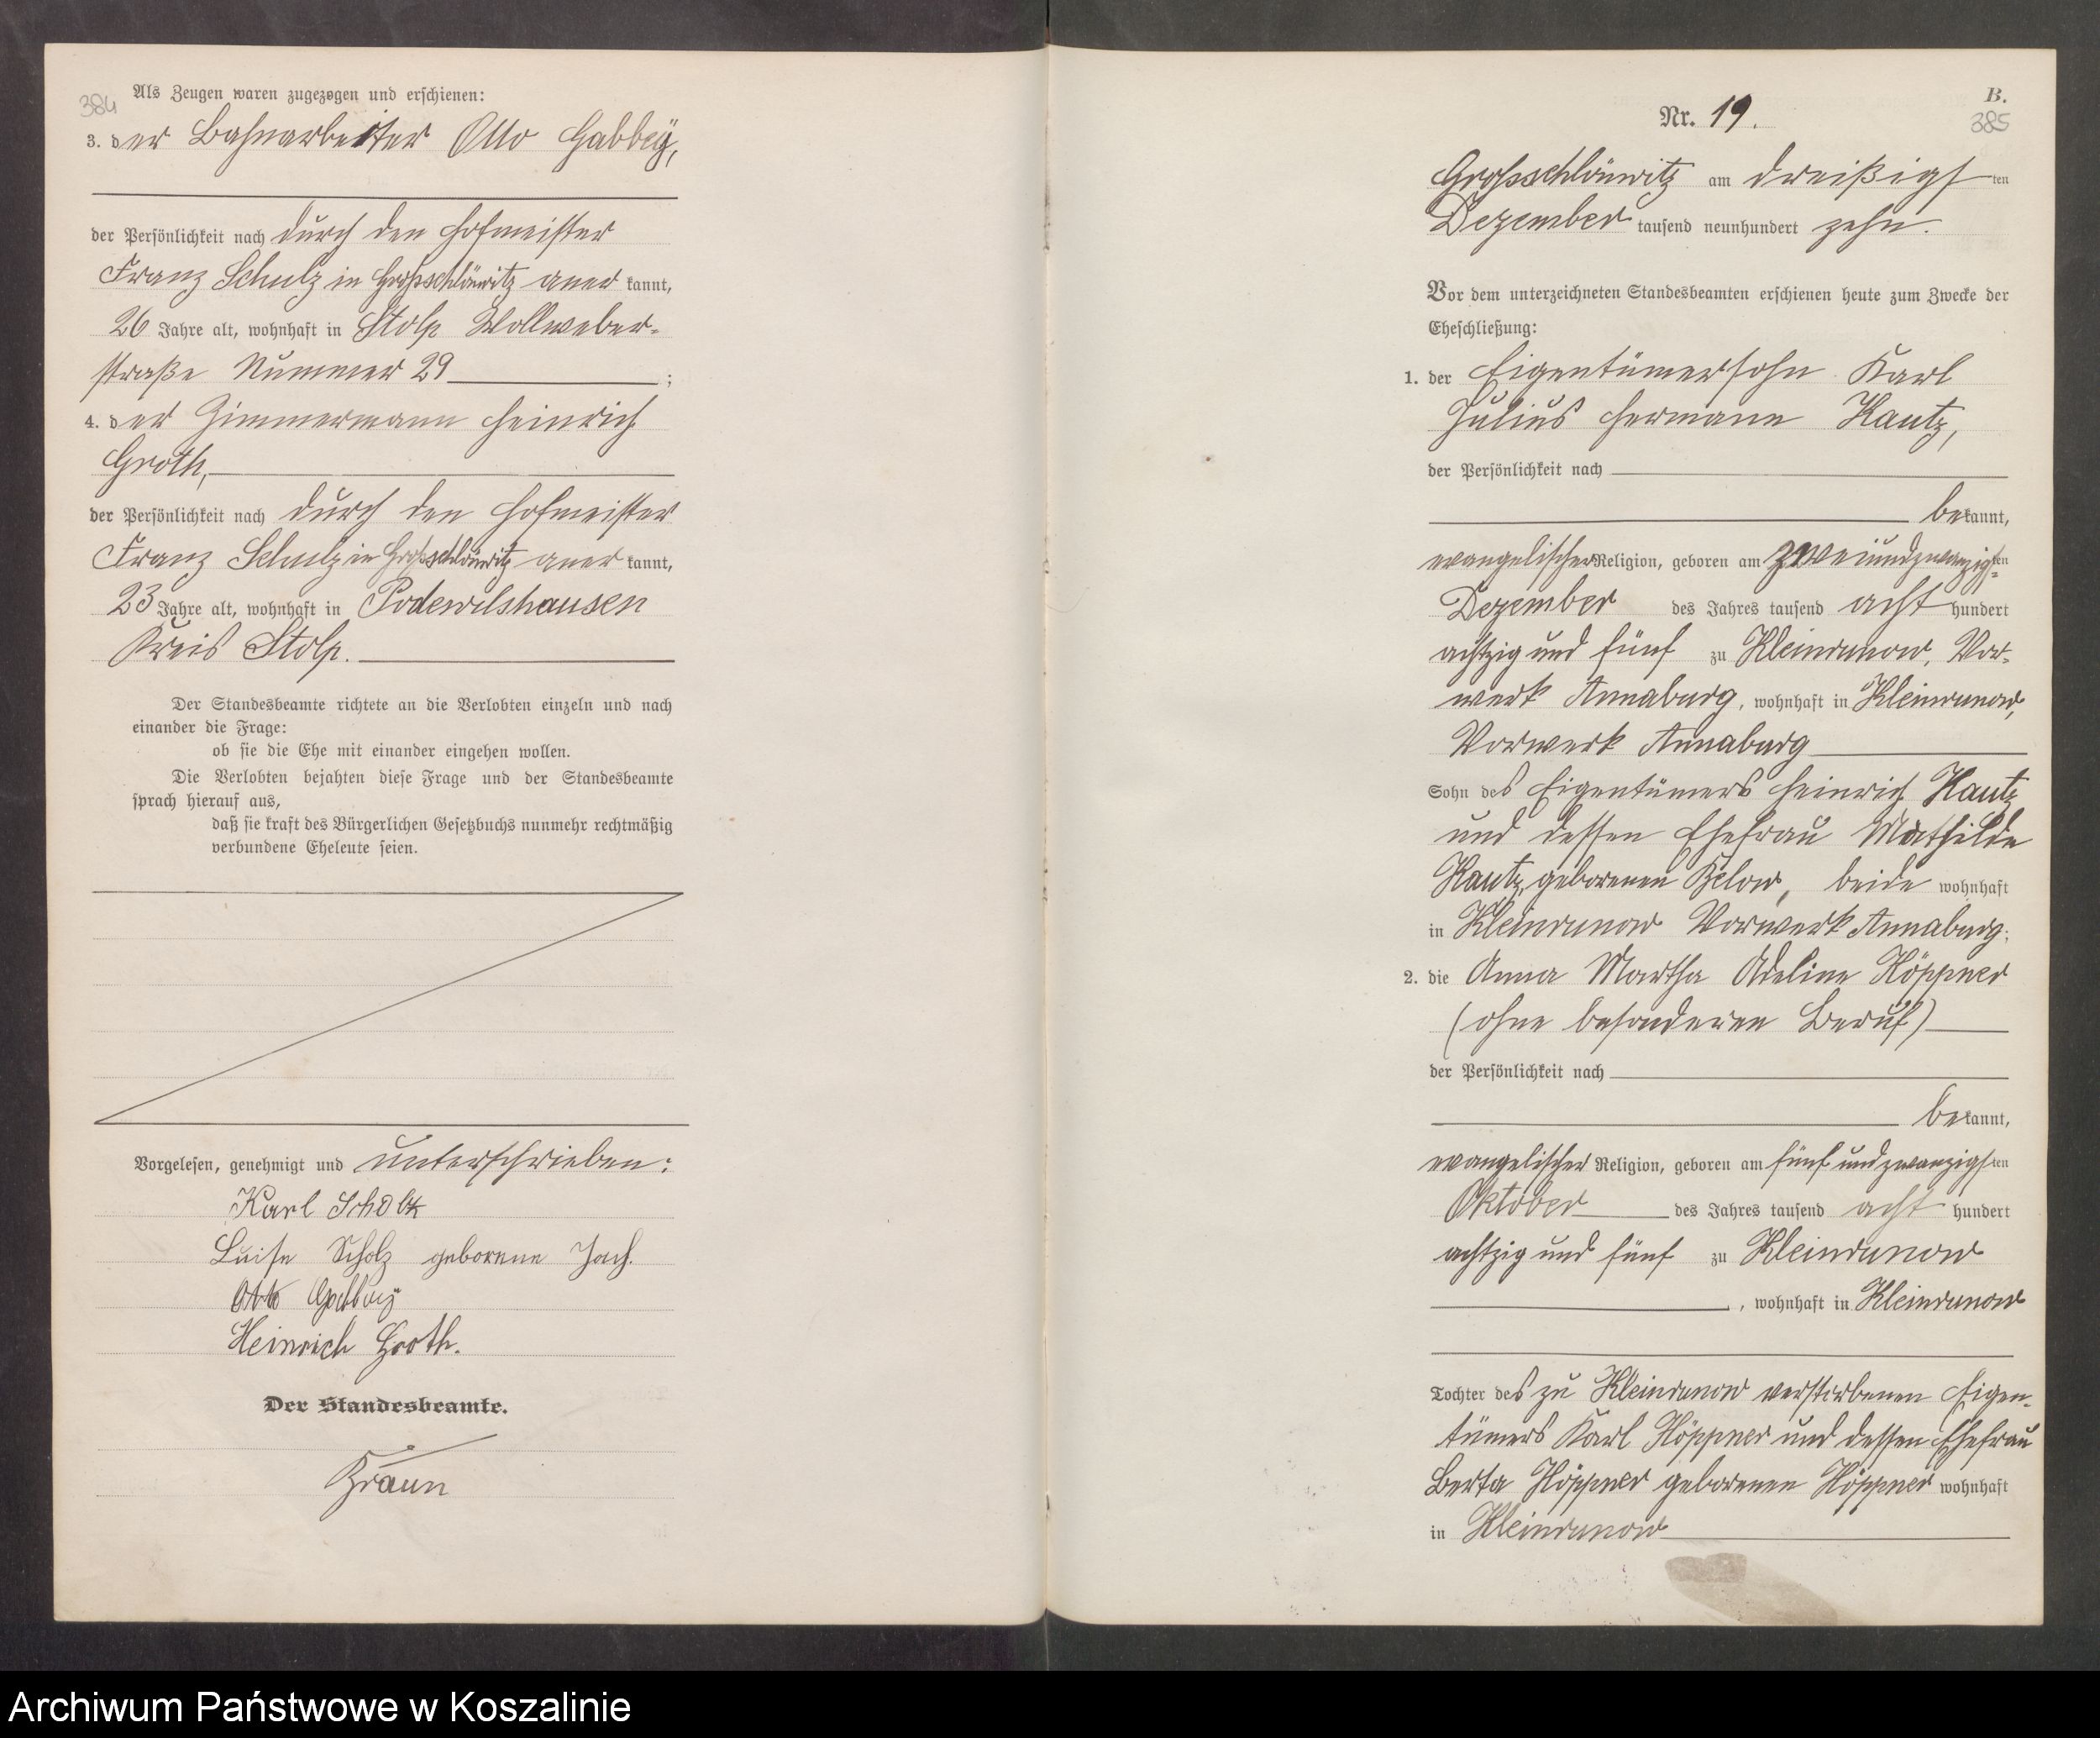 384
Als Zeugen waren zugezogen und erschienen:
3. der Bahnarbeiter Otto Gabbey,
der Persönlichkeit nach durch den Hofmeister
Franz Schulz in Großschlönwitz aner kannt,
26 Jahre alt, wohnhaft in Stolp Wollweber-
straße Nummer 29 ;
4. der Zimmermann Heinrich
Groth,
der Persönlichkeit nach durch den Hofmeister
Franz Schulz in Großschlönwitz aner kannt,
23 Jahre alt, wohnhaft in Podewilshausen
Kreis Stolp.
Der Standesbeamte richtete an die Verlobten einzeln und nach
einander die Frage:
ob sie die Ehe mit einander eingehen wollen.
Die Verlobten bejahten diese Frage und der Standesbeamte
sprach hierauf aus,
daß sie kraft des Bürgerlichen Gesetzbuchs nunmehr rechtmäßig
verbundene Eheleute seien.
Vorgelesen, genehmigt und unterschrieben:
Karl Scholz
Luise Scholz geborene Jach.
Otto Gabbey
Heinrich Groth.
Der Standesbeamte.
Braun
B.
Nr. 19.
385
Großschlönwitz am dreißigsten
Dezember tausend neunhundert zehn.
Vor dem unterzeichneten Standesbeamten erschienen heute zum Zwecke der
Eheschließung:
1. der Eigentümersohn Karl
Julius Hermann Kautz,
der Persönlichkeit nach
bekannt,
evangelischer Religion, geboren am zweiundzwanzigsten
Dezember des Jahres tausend acht hundert
achtzig und fünf zu Kleinrunow, Vor-
werk Annaburg, wohnhaft in Kleinrunow,
Vorwerk Annaburg
Sohn des Eigentümers Heinrich Kautz
und dessen Ehefrau Mathilde
Kautz, geborenen Below, beide wohnhaft
in Kleinrunow Vorwerk Annaburg;
2. die Anna Martha Adeline Höppner
(ohne besonderen Beruf)
der Persönlichkeit nach
bekannt,
evangelischer Religion, geboren am fünf und zwanzigsten
Oktober des Jahres tausend acht hundert
achtzig und fünf zu Kleinrunow
, wohnhaft in Kleinrunow
Tochter des zu Kleinrunow verstorbenen Eigen-
tümers Karl Höppner und dessen Ehefrau
Berta Höppner geborenen Höppner wohnhaft
in Kleinrunow
Archiwum Państwowe w Koszalinie